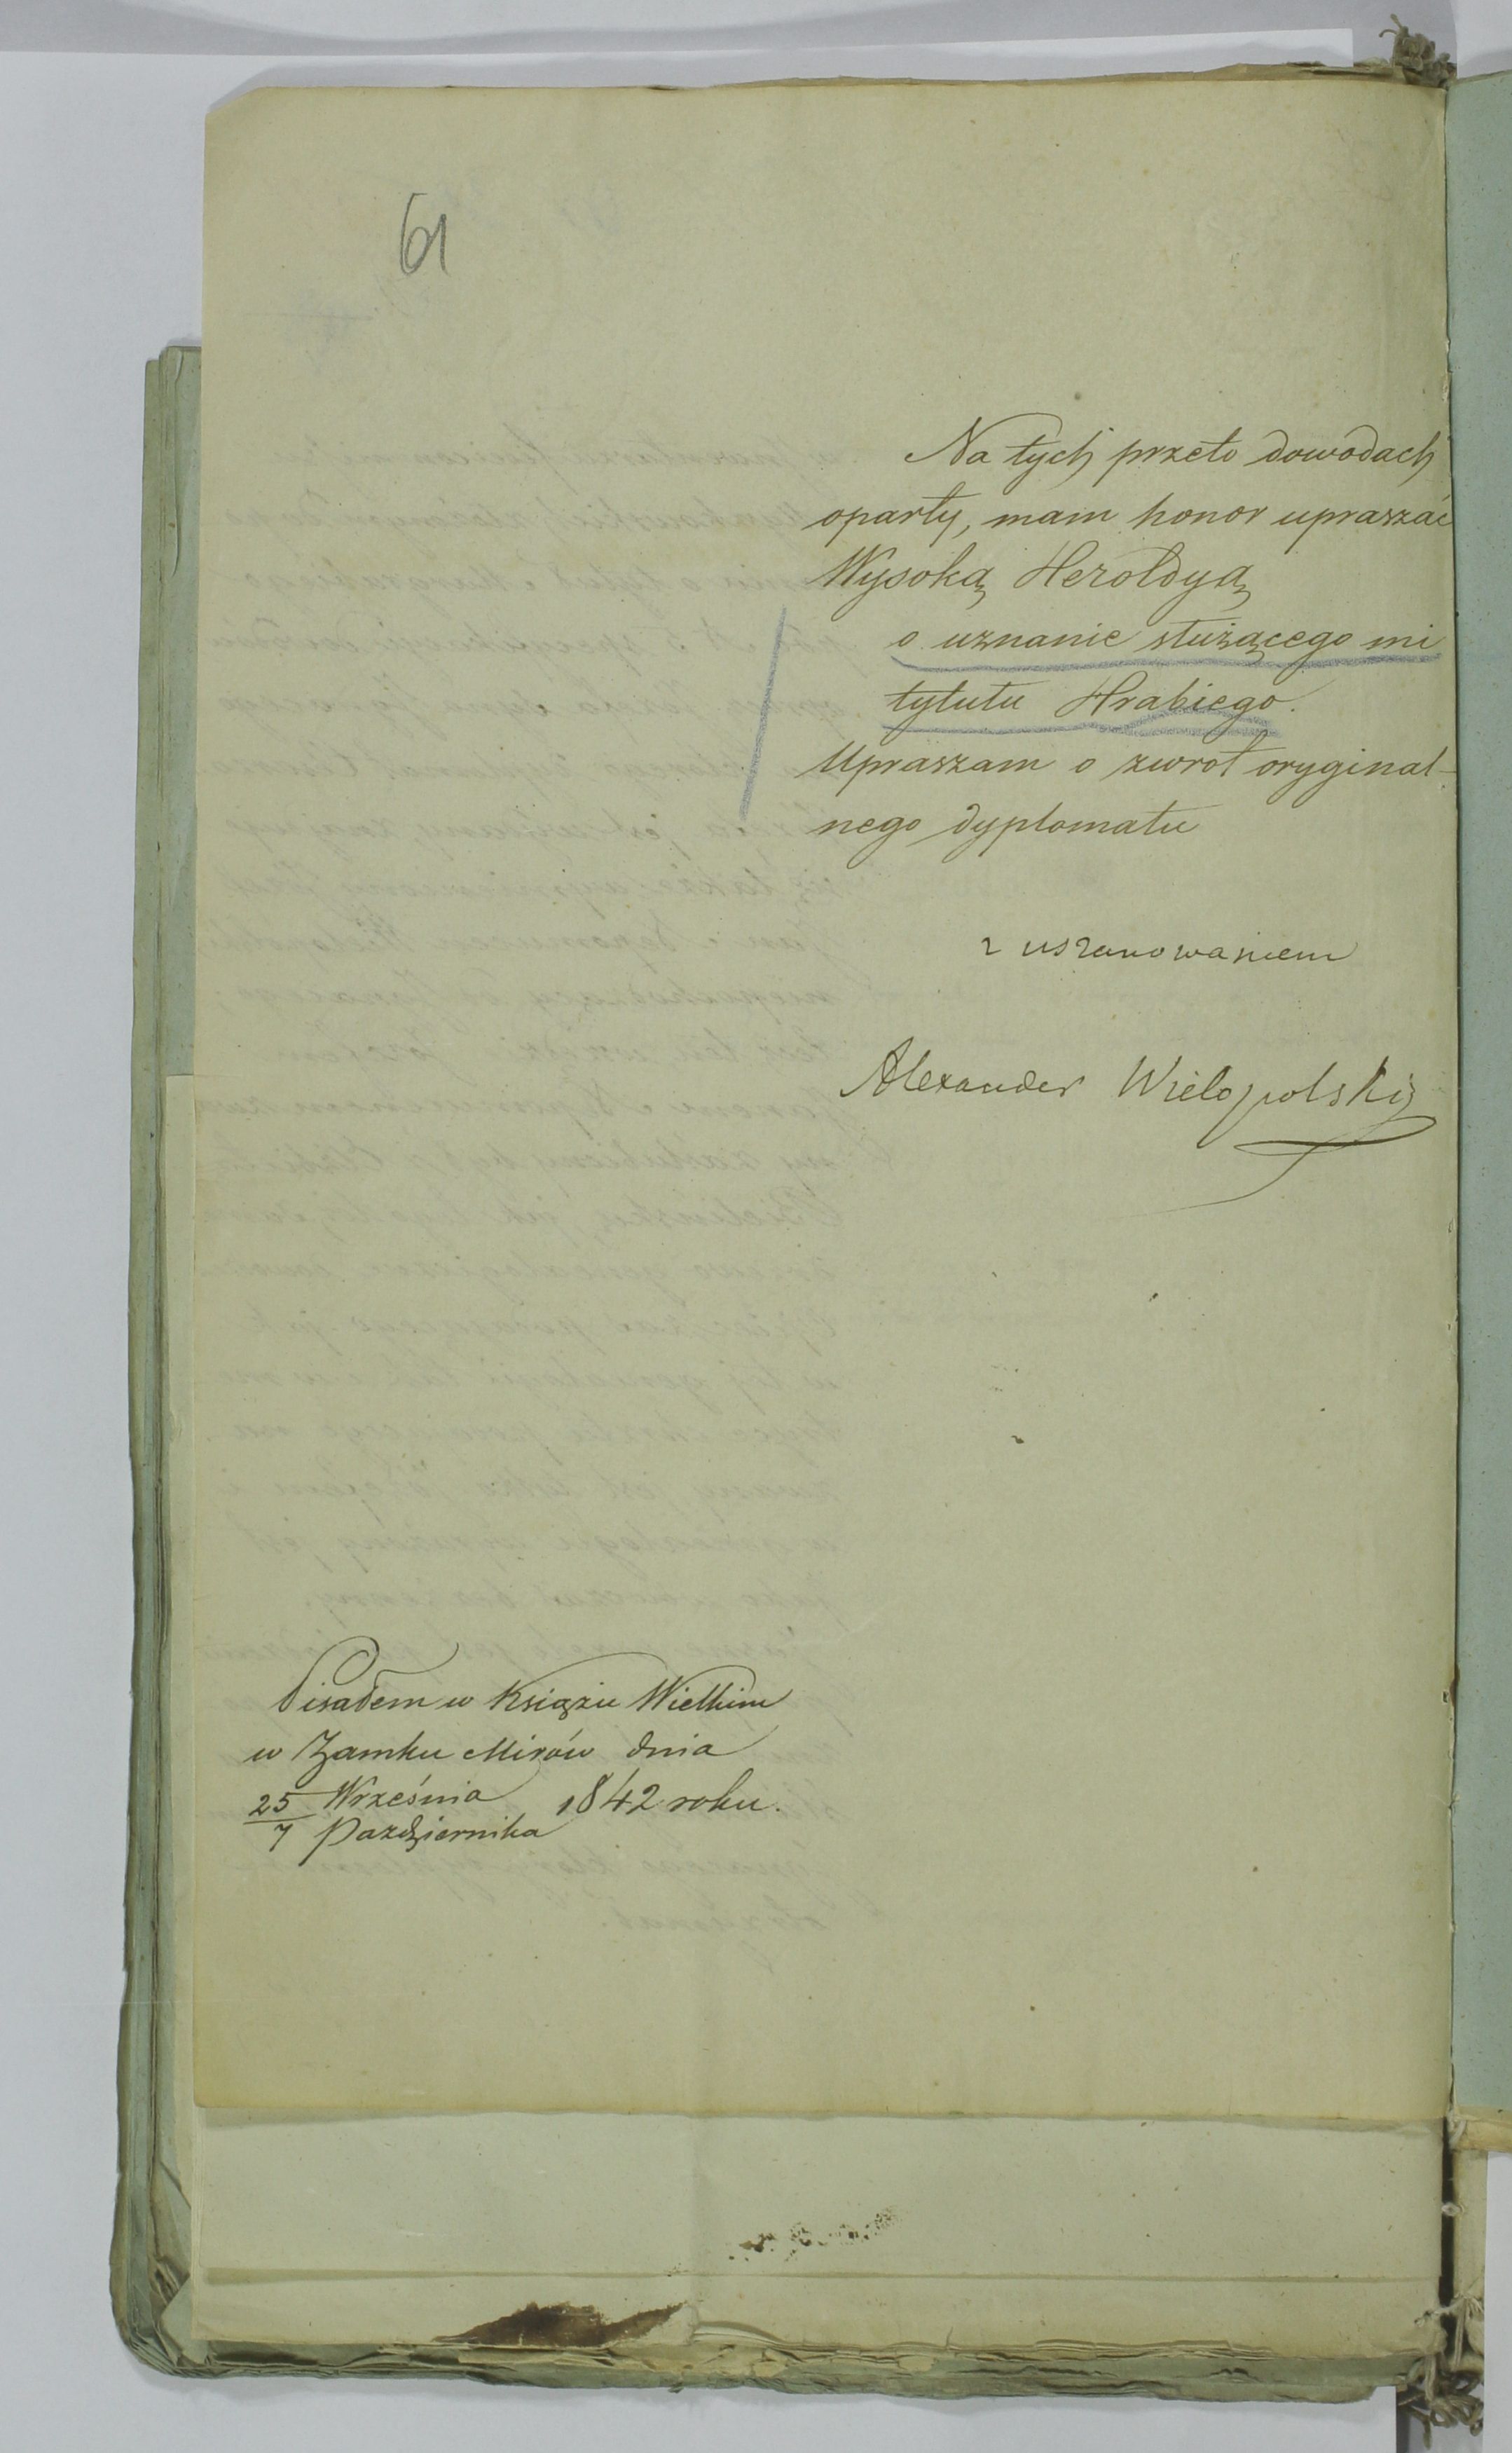 61
Na tych przeto dowodach
oparty, mam honor upraszać
Wysoką Heroldyą
o uznanie służącego mi
tytułu Hrabiego.
Upraszam o zwrot oryginal-
nego dyplomatu
z uszanowaniem
Alexander Wielopolski
Pisałem w Książu Wielkim
w Zamku Mirów dnia
25 Września 1842 roku.
7 Października